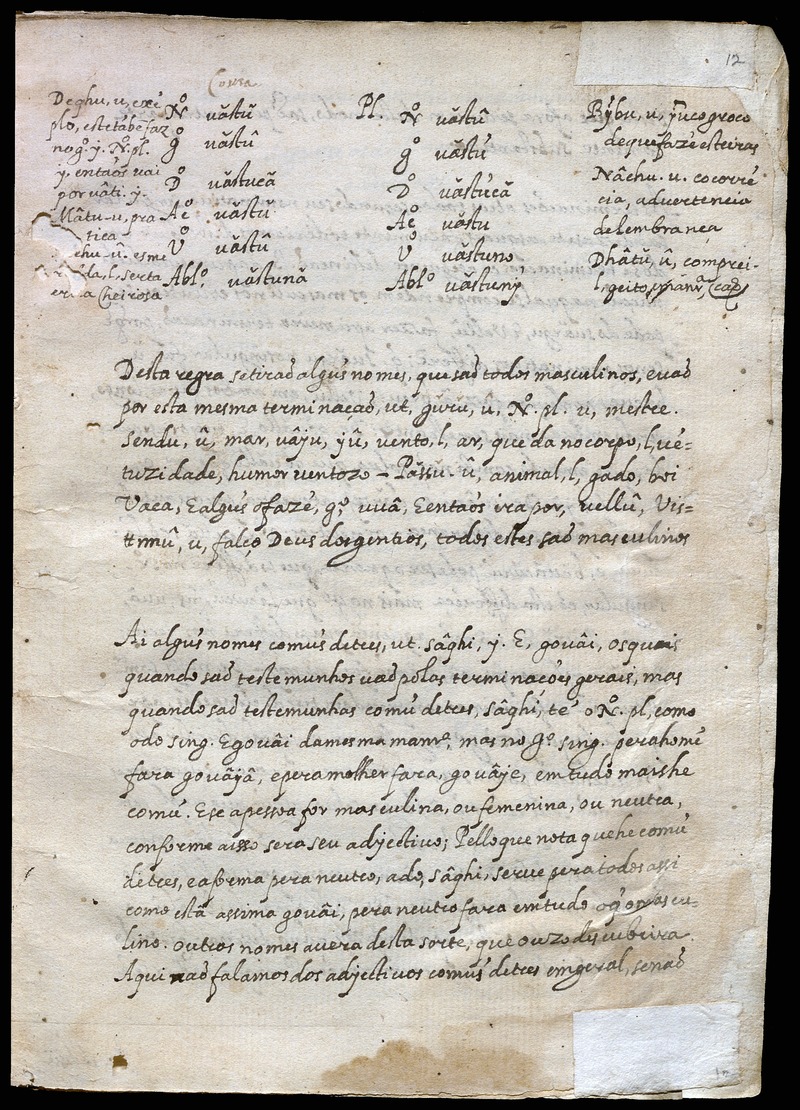 12
Cousa
Deghu, u, exẽ
plo, este tãbẽ faz
no gº. y. Nº. pl.
y. entaõs vai
por vâti. y.
Mâtu-u, pra
tica
chu-û. esme
da, l, serta
erua Cheirosa
Nº vãstũ
gº vãstû
Dº vãstucã
Aᵉ vãstũ
Vº vãstû
Ablº. vãstunã
Pl. Nº vãstû
gº vãstũ
Dº vãstucã
Aᵉ vãstu
Vº vãstuno
Ablº vãstuny
Bỹbu, u, jũco groço
de que fazẽ esteiras
Nâchu. u. cocorrẽ
cia, advertencia
delembrança
Dhâtũ, û, comprei-
l, geito,
Desta regra setiraõ algũs nomes, que saõ todos masculinos, e vaõ
por esta mesma terminaçaõ, ut, gũrũ, û, Nº. pl. u, mestre.
Sendu, û, mar, vâju, jũ, vento, l, ar, que da no corpo, l, vẽ=
tuzidade, humor ventozo – Passu-û, animal, l, gado, boi
Vaca, E algũs o fazẽ, gº vuâ, E entaõs ira por, vellû, Vis=
ttnnû, u, falço Deus dos gentios, todos estes saõ masculinos
Ai algũs nomes comũs detres, ut. sâghi, y. E, gouâi, os quais
quando saõ testemunhos vaõ pólas terminaçoẽs gerais, mas
quando saõ testemunhas comũ detres, sâghi, tẽ o Nº. pl, como
o do sing. E gouâi da mesma manrª, mas no gº sing. pera homẽ
fara gouâjâ, e pera molher fara, gouâje, em tudo mais he
comũ. E se a pessoa for masculina, ou femenina, ou neutra,
conforme a isso sera seu adjectivo; Pello que nota que he comũ
detres, e a forma pera neutro, a de, sâghi, serue pera todos assi
como està assima gouâi, pera neutro fara em tudo o q̃ o mascu=
lino. outros nomes auera desta sorte, que o uzo descubrira.
Aqui naõ falamos dos adjectivos comũs detres em geral, senaõ